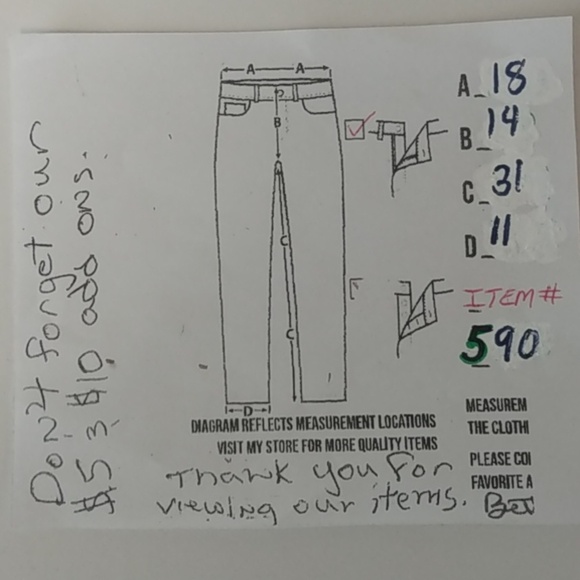 Don't forget our
$5 3. $10 add ons.
A A
B
C
C
D
A_18
B_14
C_31
D_11
ITEM#
590
DIAGRAM REFLECTS MEASUREMENT LOCATIONS
VISIT MY STORE FOR MORE QUALITY ITEMS
Thank you for
viewing our items.
MEASUREM
THE CLOTHI
PLEASE CO
FAVORITE A